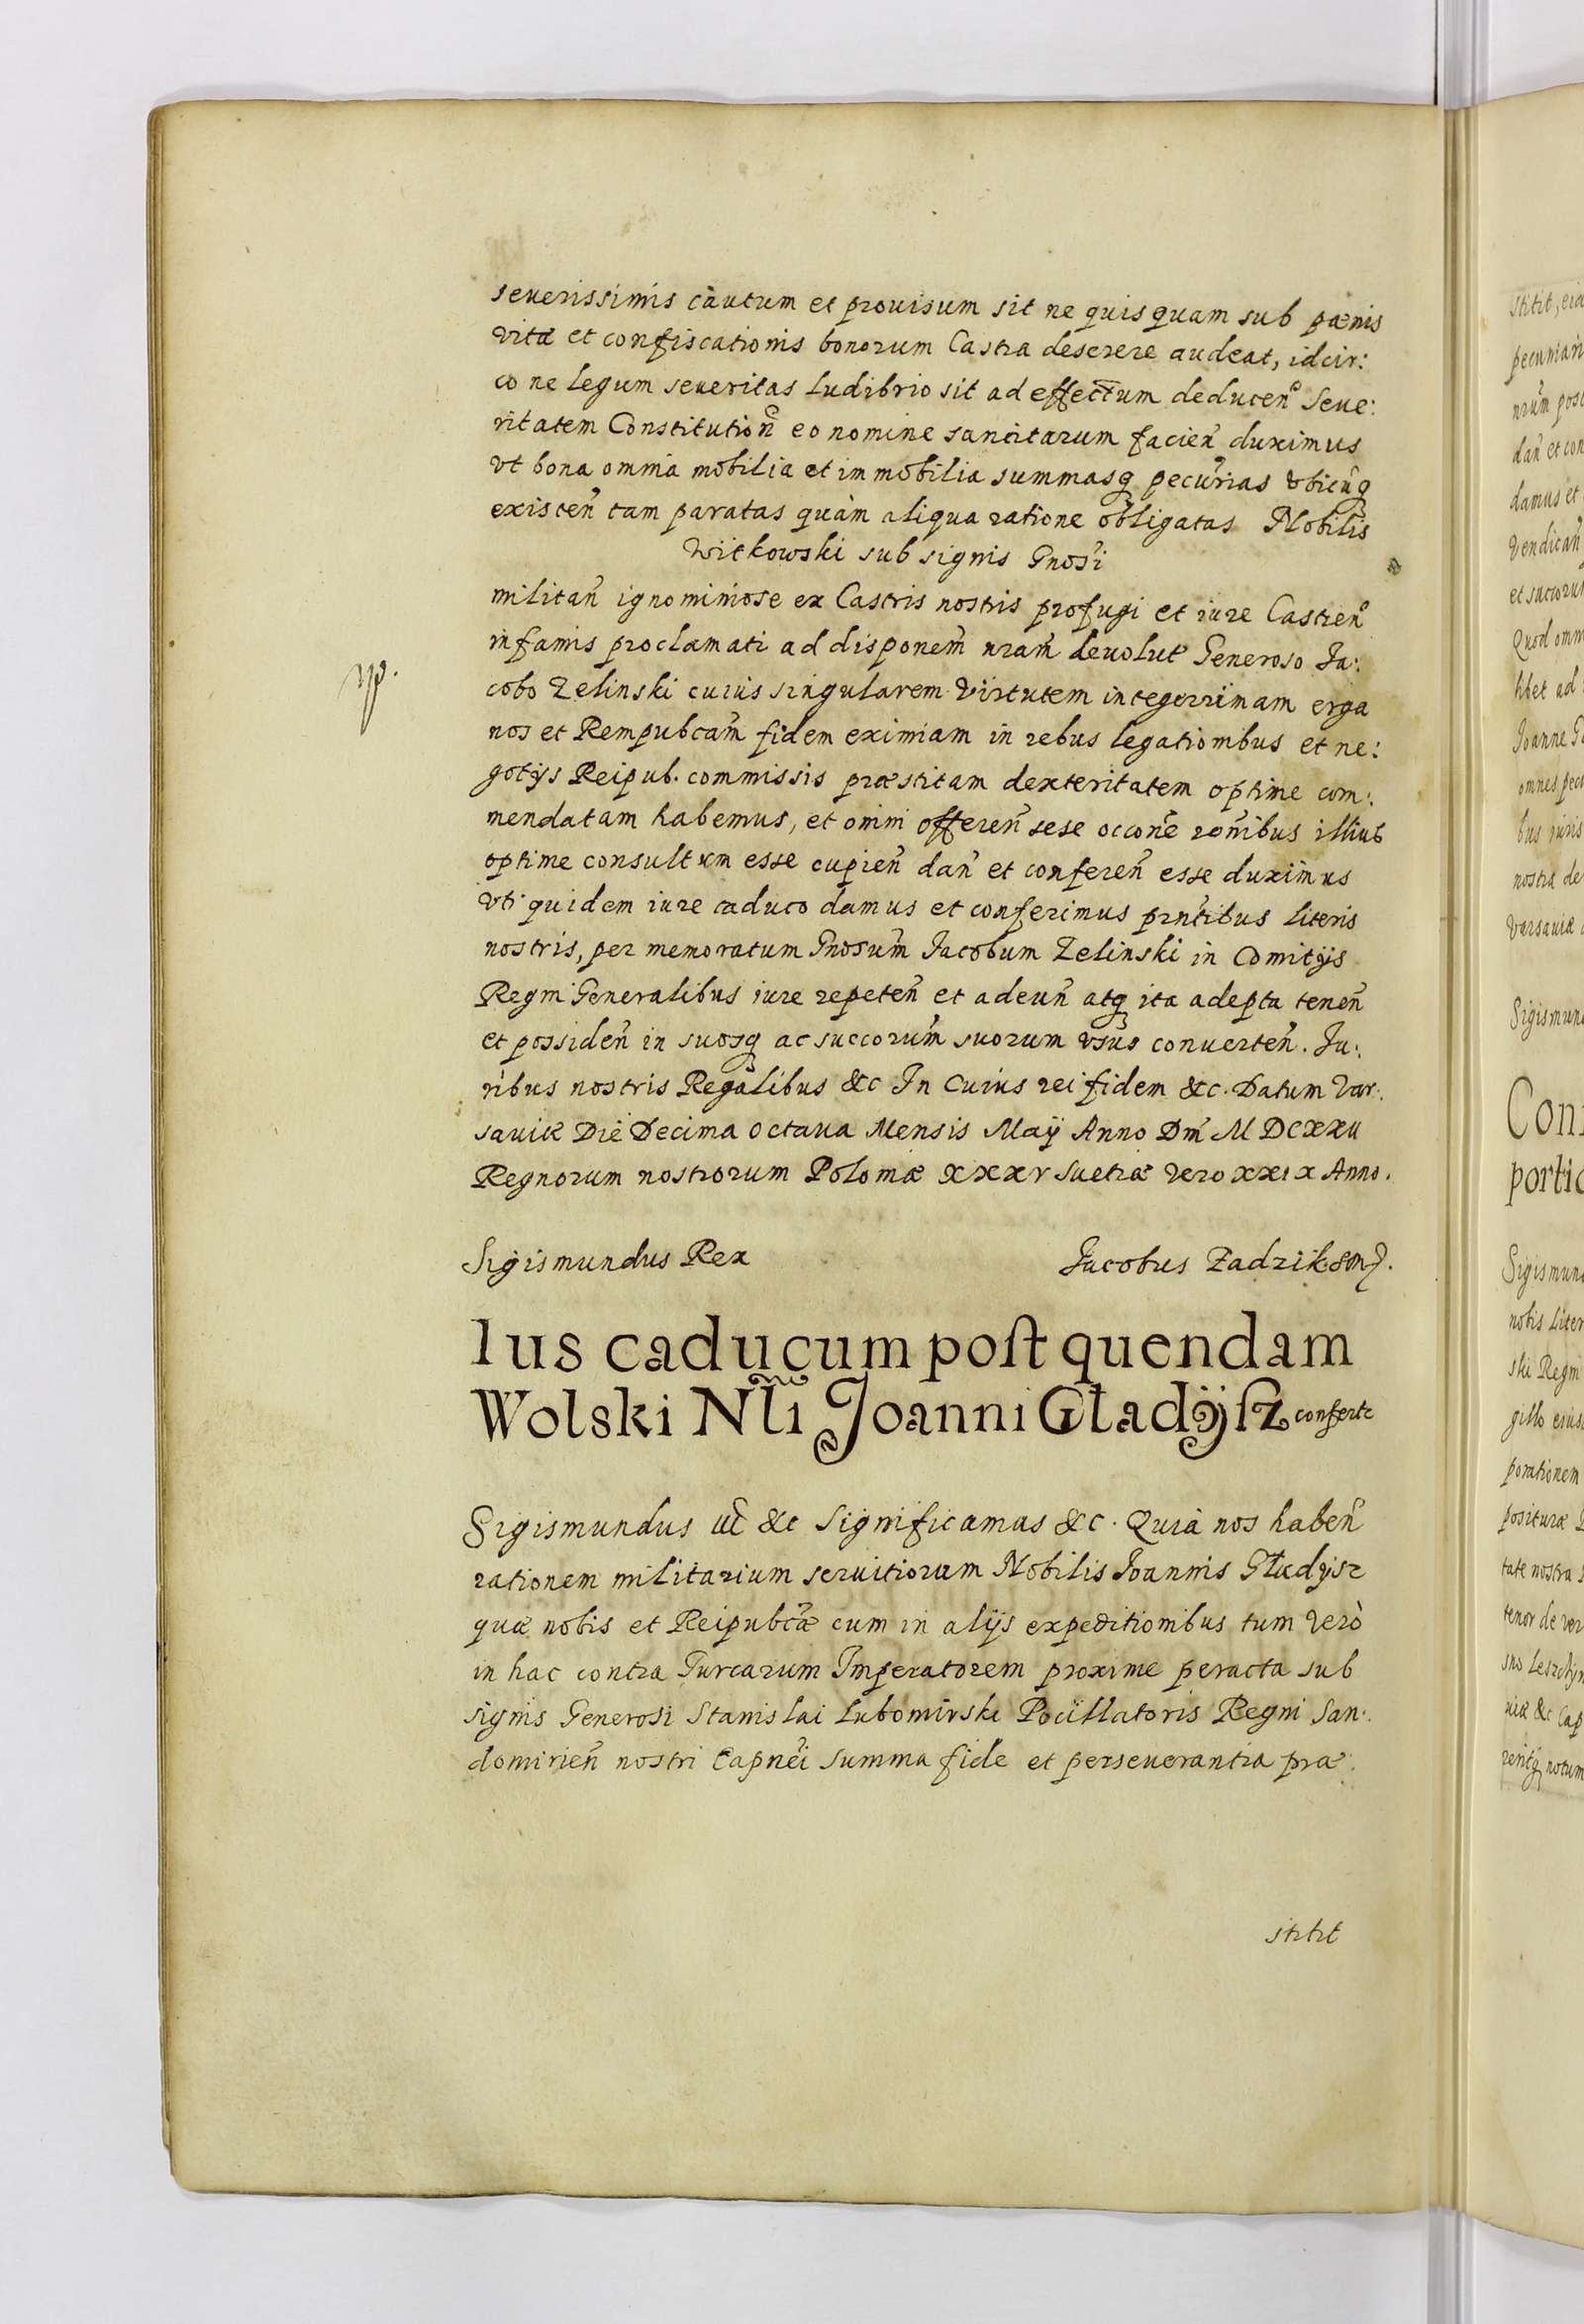 seuerissimis cautum et prouisum sit ne quisquam sub pænis
vitæ et confiscationis bonorum Castra deserere audeat, idcir:
co ne legum seueritas ludibrio sit ad effectum deducen̄ seue:
ritatem Constitution̄ eo nomine sancitarum facien̄ duximus
vt bona omnia mobilia et immobilia summasq̄ pecunias vbicunq̄
existen̄ tam paratas quàm aliqua ratione obligatas Nobilis
Witkowski sub signis Gnosi
militan̄ ignominiose ex Castris nostris profugi et iure Castren̄
infamis proclamati ad disponem̄ nram̄ deuolut Generoso Ja:
cobo Zelinski cuius singularem virtutem integerrimam erga
nos et Rempubcam̄ fidem eximiam in rebus legationibus et ne:
gotijs Reipub. commissis præstitam dexteritatem optime com:
mendatam habemus, et omni offeren̄ sese occone ronibus illius
optime consultum esse cupien̄ dan̄ et conferen̄ esse duximus
vti quidem iure caduco damus et conferimus prntibus literis
nostris, per memoratum Gnosum̄ Jacobum Zelinski in Comitijs
Regni Generalibus iure repeten̄ et adeun̄ atq̄ ita adepta tenen̄
et possiden̄ in suosq̄ ac succorum̄ suorum vsus conuerten̄. Ju:
ribus nostris Regalibus &c In cuius rei fidem &c. Datum Var:
sauiæ Die Decima octaua Mensis Maij Anno Dni M DCXXII
Regnorum nostrorum Poloniæ XXXV Suetiæ vero XXIX Anno.
Sigismundus Rex Jacobus Zadzik
Ius caducum post quendam
Wolski Nl̄i Joanni Gładÿsz confertr
Sigismundus uc̄ &c Significamus &c. Quia nos haben̄
rationem militarium seruitiorum Nobilis Joannis Gładysz
quæ nobis et Reipubcæ cum in alijs expeditionibus tum verò
in hac contra Turcarum Imperatorem proxime peracta sub
signis Generosi Stanislai Lubomirski Pocillatoris Regni San:
domirien̄ nostri Capnei summa fide et perseuerantia præ:
stitit